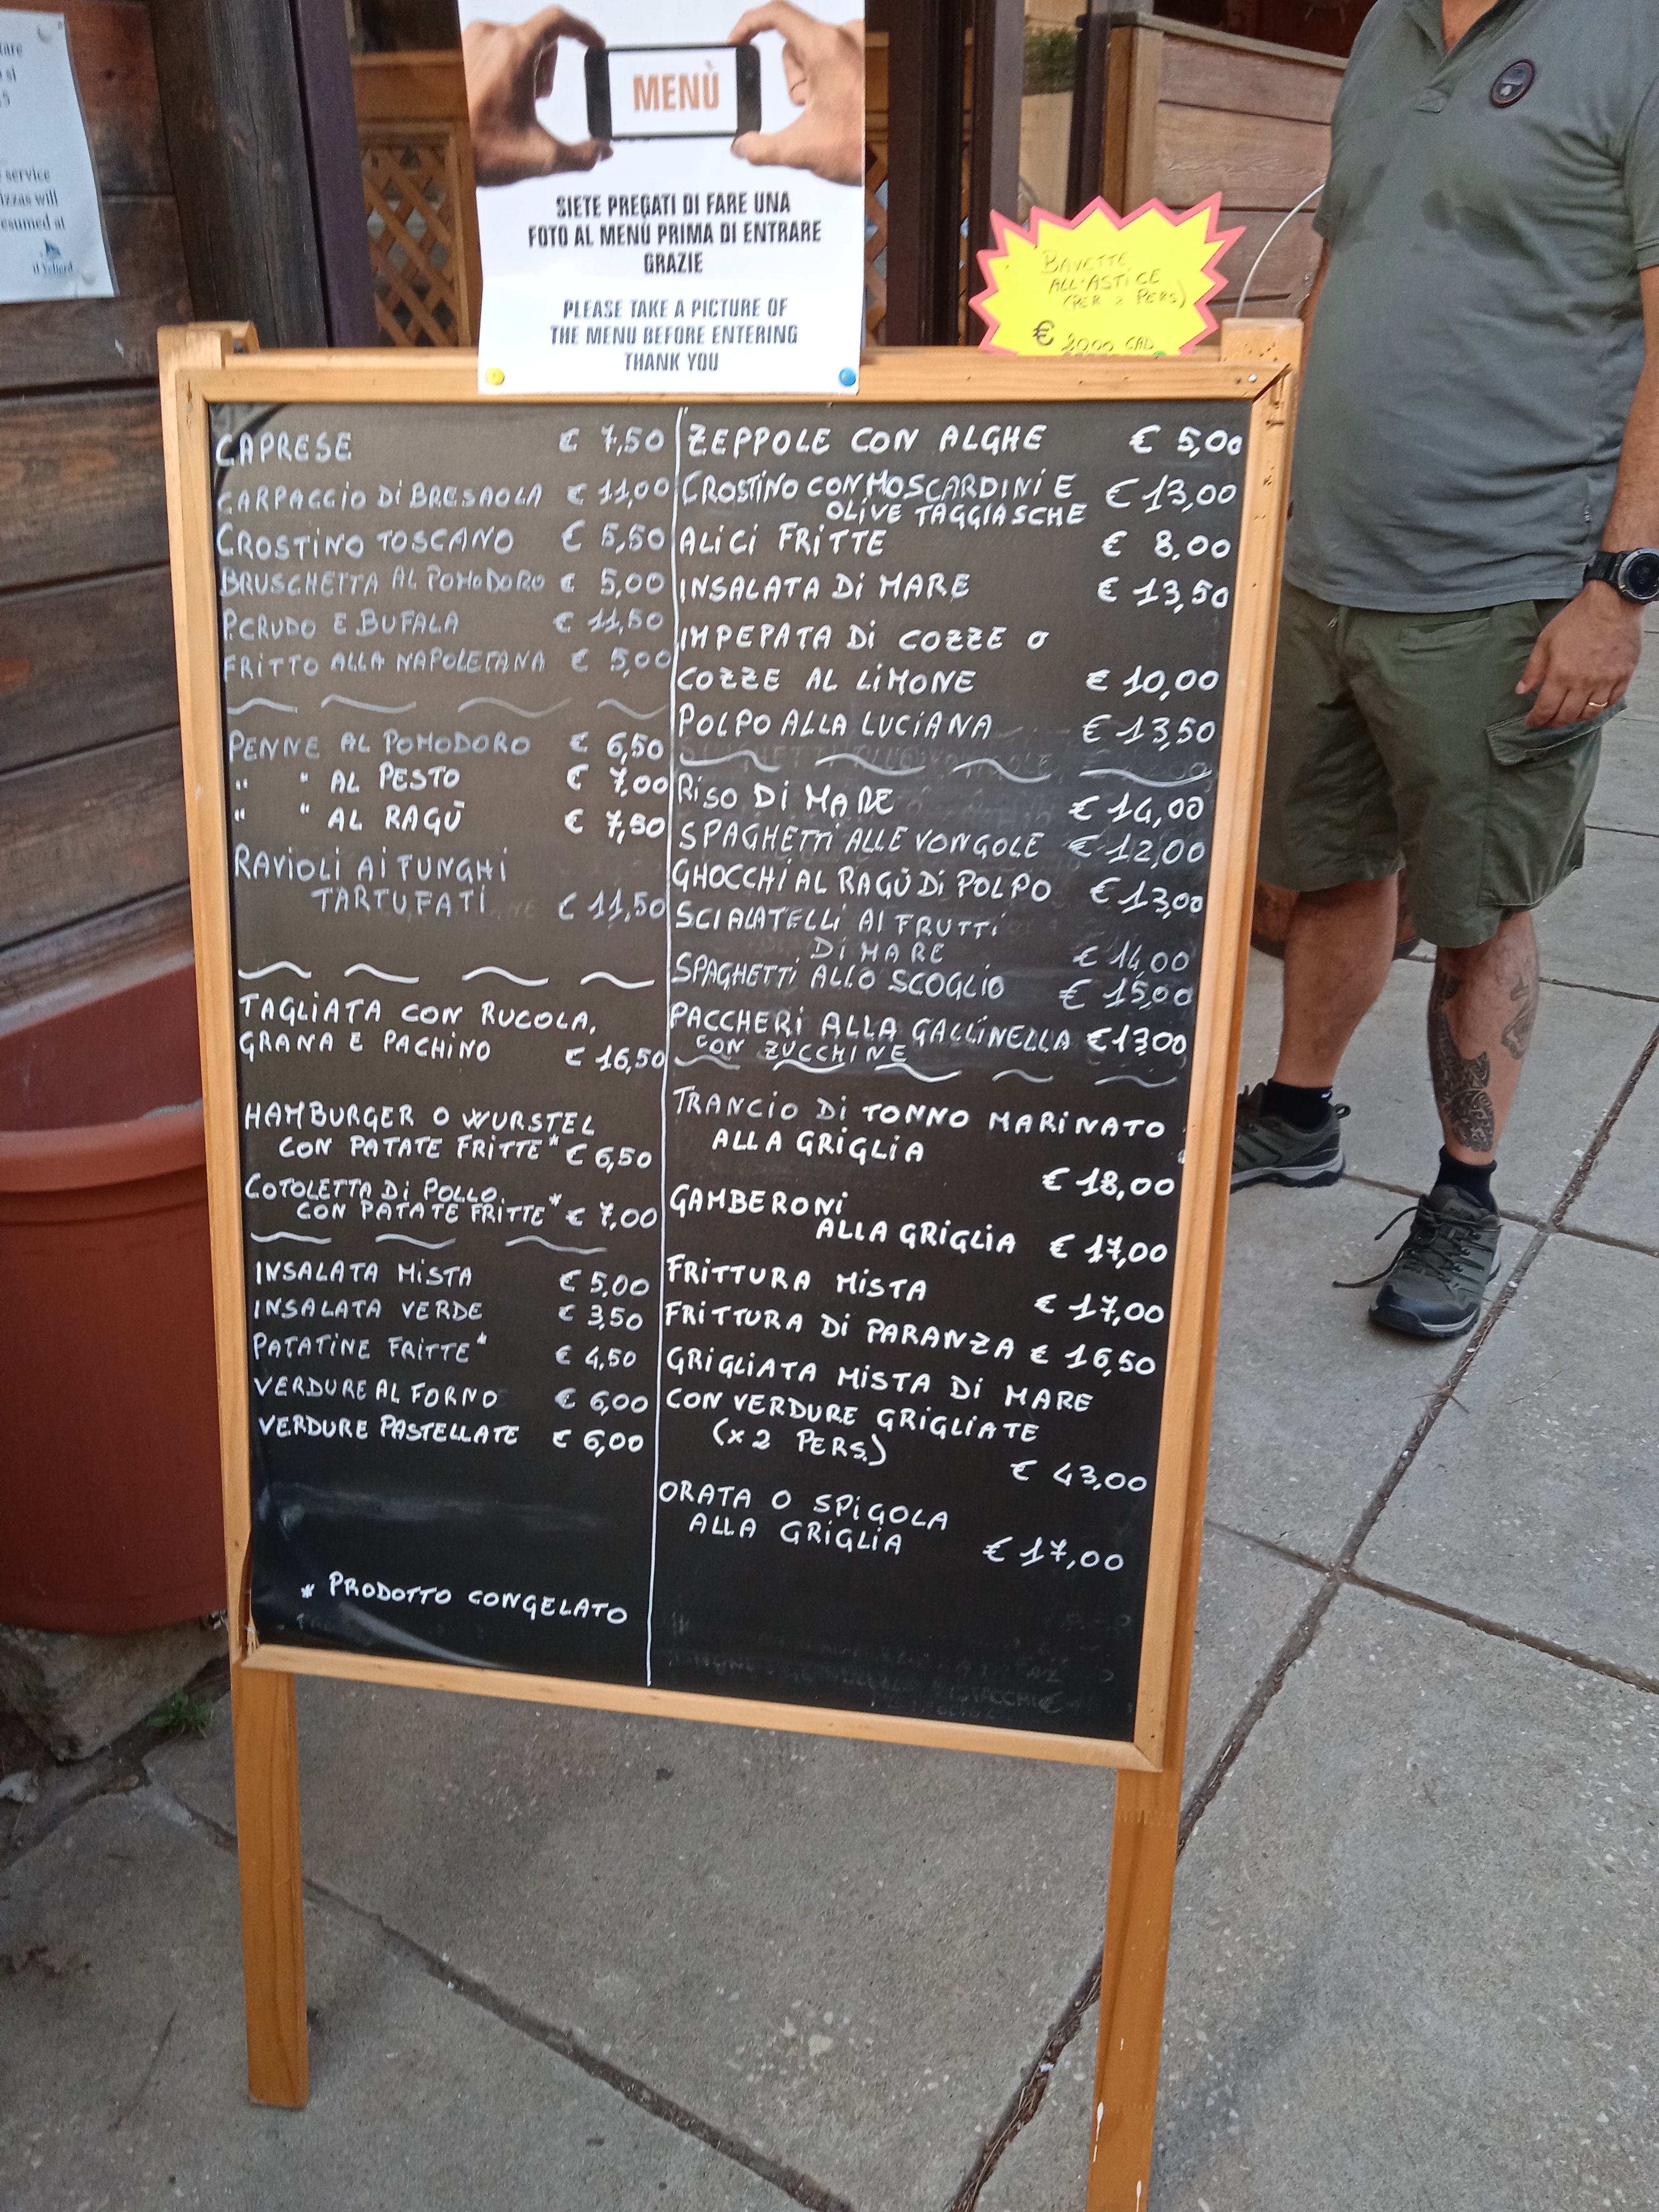 tare
si
service
izzas will
esumed at
il Veliero
MENÙ
SIETE PREGATI DI FARE UNA
FOTO AL MENÙ PRIMA DI ENTRARE
GRAZIE
PLEASE TAKE A PICTURE OF
THE MENU BEFORE ENTERING
THANK YOU
BAVETTE
ALL'ASTICE
(PER 2 PERS)
€ 20,00 CAD
CAPRESE € 7,50
CARPACCIO Di BRESAOLA € 11,00
CROSTiNO TOSCANO € 5,50
BRUSCHETTA AL POMODORO € 5,00
P.CRUDO E BUFALA € 11,50
FRITTO ALLA NAPOLETANA € 5,00
PENNE AL POMODORO € 6,50
" " AL PESTO € 7,00
" " AL RAGÙ € 7,50
RAVIOLI Ai FUNGHI
TARTUFATi € 11,50
TAGLiATA CON RUCOLA,
GRANA E PACHiNO € 16,50
HAMBURGER O WURSTEL
CON PATATE FRITTE* € 6,50
COTOLETTA Di POLLO
CON PATATE FRITTE* € 7,00
INSALATA MiSTA € 5,00
INSALATA VERDE € 3,50
PATATiNE FRiTTE* € 4,50
VERDURE AL FORNO € 6,00
VERDURE PASTELLATE € 6,00
* PRODOTTO CONGELATO
ZEPPOLE CON ALGHE € 5,00
CROSTiNO CON MOSCARDiNi E € 13,00
OLiVE TAGGIASCHE
ALiCi FRiTTE € 8,00
INSALATA Di MARE € 13,50
IMPEPATA Di COZZE O
COZZE AL LiMONE € 10,00
POLPO ALLA LUCIANA € 13,50
RiSO Di MARE € 14,00
SPAGHETTi ALLE VONGOLE € 12,00
GHOCCHi AL RAGÙ Di POLPO € 13,00
SCIALATELLi AI FRUTTi
Di MARE € 14,00
SPAGHETTi ALLO SCOGLiO € 15,00
PACCHERi ALLA GALLiNELLA € 13,00
CON ZUCCHINE
TRANCiO Di TONNO MARiNATO
ALLA GRiGLiA
€ 18,00
GAMBERONi
ALLA GRIGLIA € 17,00
FRiTTURA MiSTA
€ 17,00
FRiTTURA Di PARANZA € 16,50
GRiGLiATA MiSTA Di MARE
CON VERDURE GRiGLiATE
(x 2 PERS.)
€ 43,00
ORATA O SPiGOLA
ALLA GRiGLiA
€ 17,00